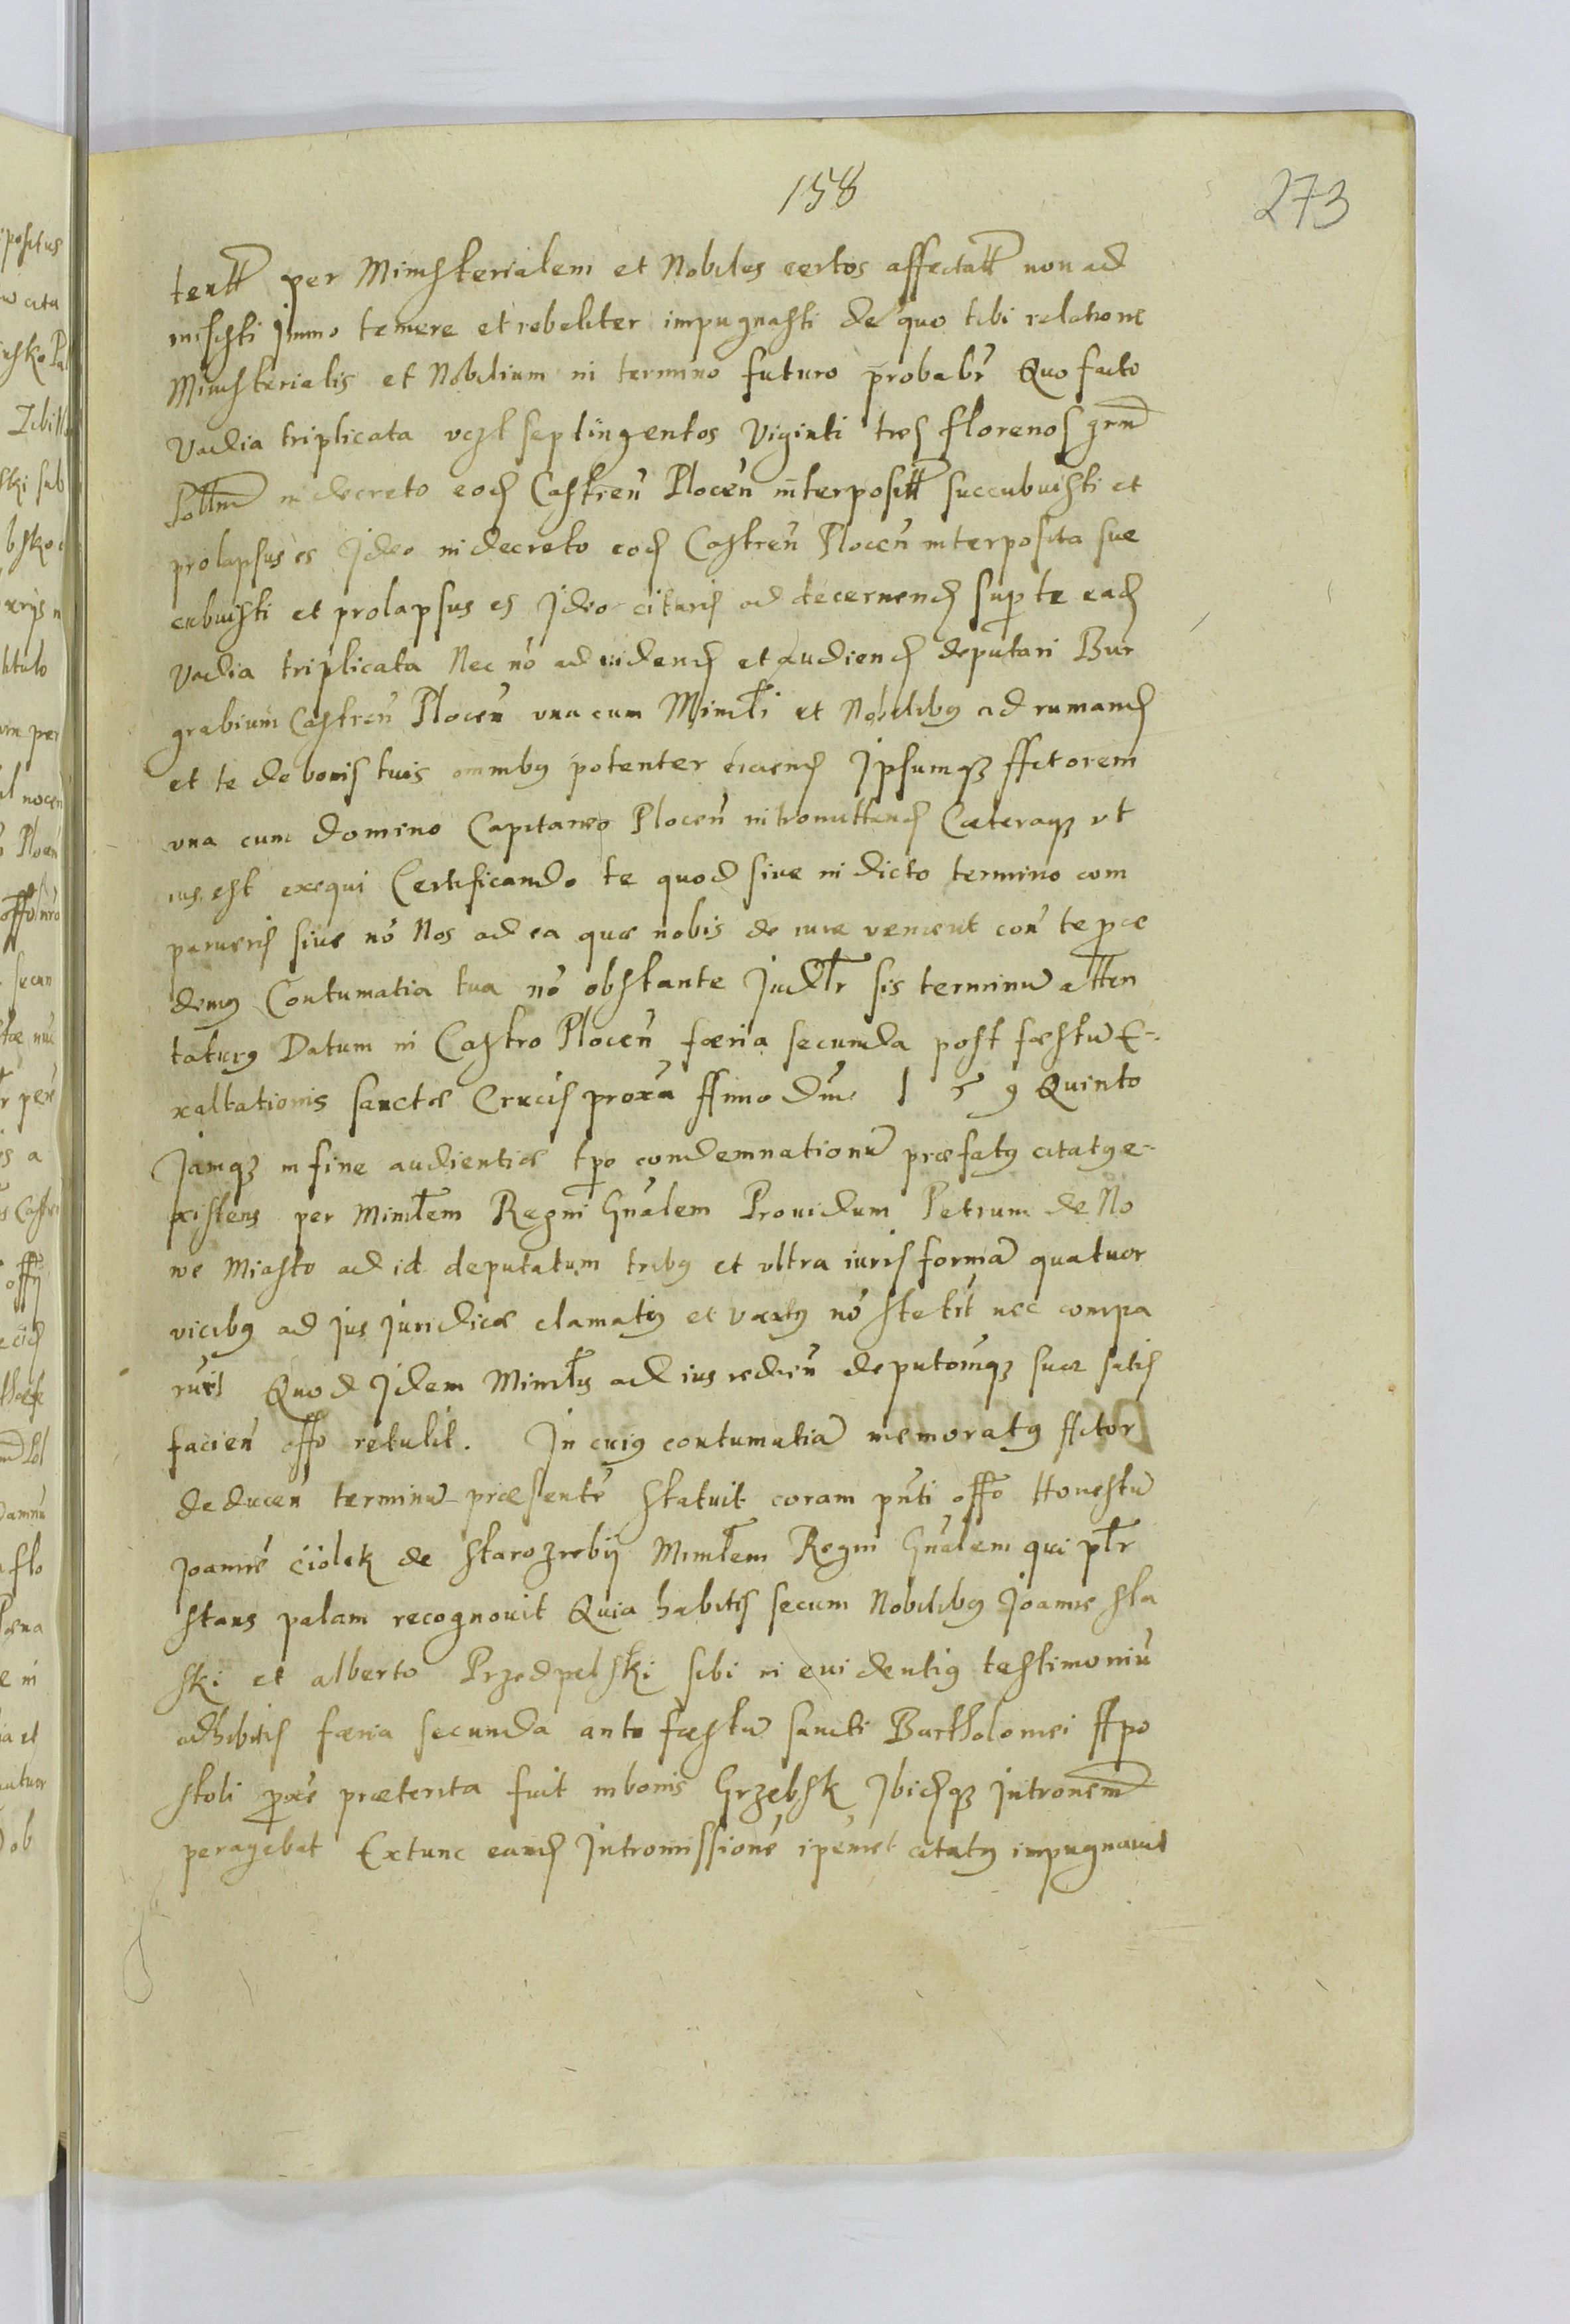 158
273
per Ministerialem et Nobiles certos affectatt non ad
misisti Immo temere et rebeliter impugnasti de quo tibi relatione
Ministerialis et Nobilium in termino futuro probabr Quo facto
Vadia triplicata vczl septingentos Viginti tres florenos
in decreto eod Castren Plocen interpositt succubuisti et
prolapsus es Ideo in decreto eod Castren Plocen interposita suc
cubuisti et prolapsus es Ideo citaris ad decernend super te ead
Vadia triplicata Nec no ad uidend et audiend deputari Bur
grabium Castren Plocen vna cum Minlri et Nobilibus ad rumand
et te de bonis tuis omnibus potenter eiciend Ipsumqz Actorem
vna cum domino Capitaneo Plocen intromittend Caeteraqz vt
ius est exequi Certificando te quod siue in dicto termino com
parueris siue no Nos ad ea quae nobis de iure venient con te proce
demus Contumatia tua no obstante Judlr sis terminu atten
taturus Datum in Castro Plocen faeria secunda post faestu E-
xaltationis sanctae Crucis proxa Anno Dm 1 5 9 Quinto
Jamqz in fine audientiae tpo condemnationu praefatus citatus e-
xistens per Minlem Regni Gnalem Prouidum Petrum de No
we Miasto ad id deputatum tribus et vltra iuris forma quatuor
vicibus ad jus juridicae clamatus et no stetit nec compa
ruit Quod Idem Minlis ad ius redien deputoniqz suae satis
facien offo retulit. In cuius contumatia memoratus Actor
deducen terminu praesente statuit coram pnti offo Honestu
Joanne Ciolek de Starozrebij Minlem Regni Gnalem qui plr
stans palam recognouit Quia habitis secum Nobilibus Joanne Sla
ski et alberto Przedpelski sibi in euidentius testimoniu
adhibitis faeria secunda ante faestu sancti Bartholomei Apo
stoli proxe praeterita fuit in bonis Grzebsk Ibidqz Intronem
peragebat Extunc eand Intromissione ipemet citatus impugnauit